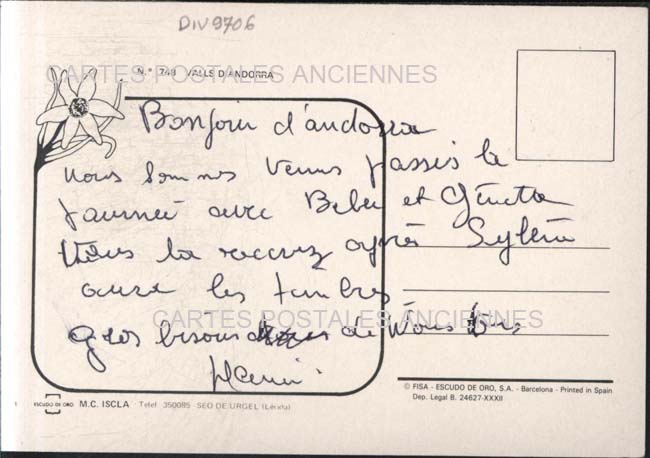 DIV9706
CARTES POSTALES ANCIENNES
N.° 748 VALLS D'ANDORRA
Bonjour d'andorra
nous sommes venus passés la
journée avec Beber et Ginette
Vous la recevrez après Sylvie
aura les timbres
gros bisous de Nous tous
CARTES POSTALES ANCIENNES
© FISA - ESCUDO DE ORO, S.A. - Barcelona - Printed in Spain
Dep. Legal B. 24627-XXXII
ESCUDO DE ORO M.C. ISCLA - Telef. 350085 - SEO DE URGEL (Lérida)